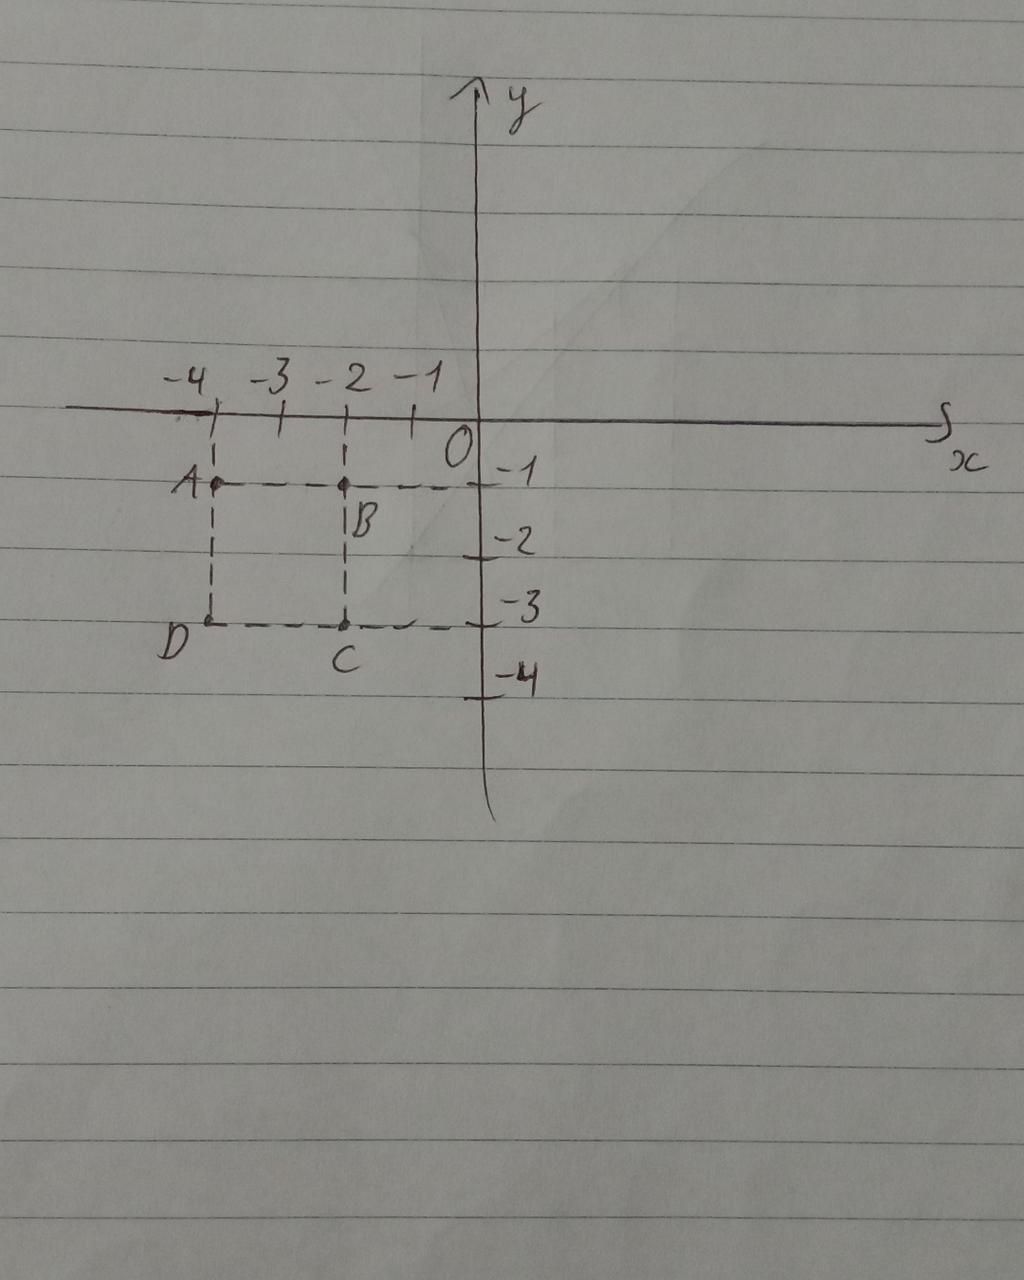 y
-4 -3 -2 -1
O
x
A -1
B
-2
-3
D C
-4